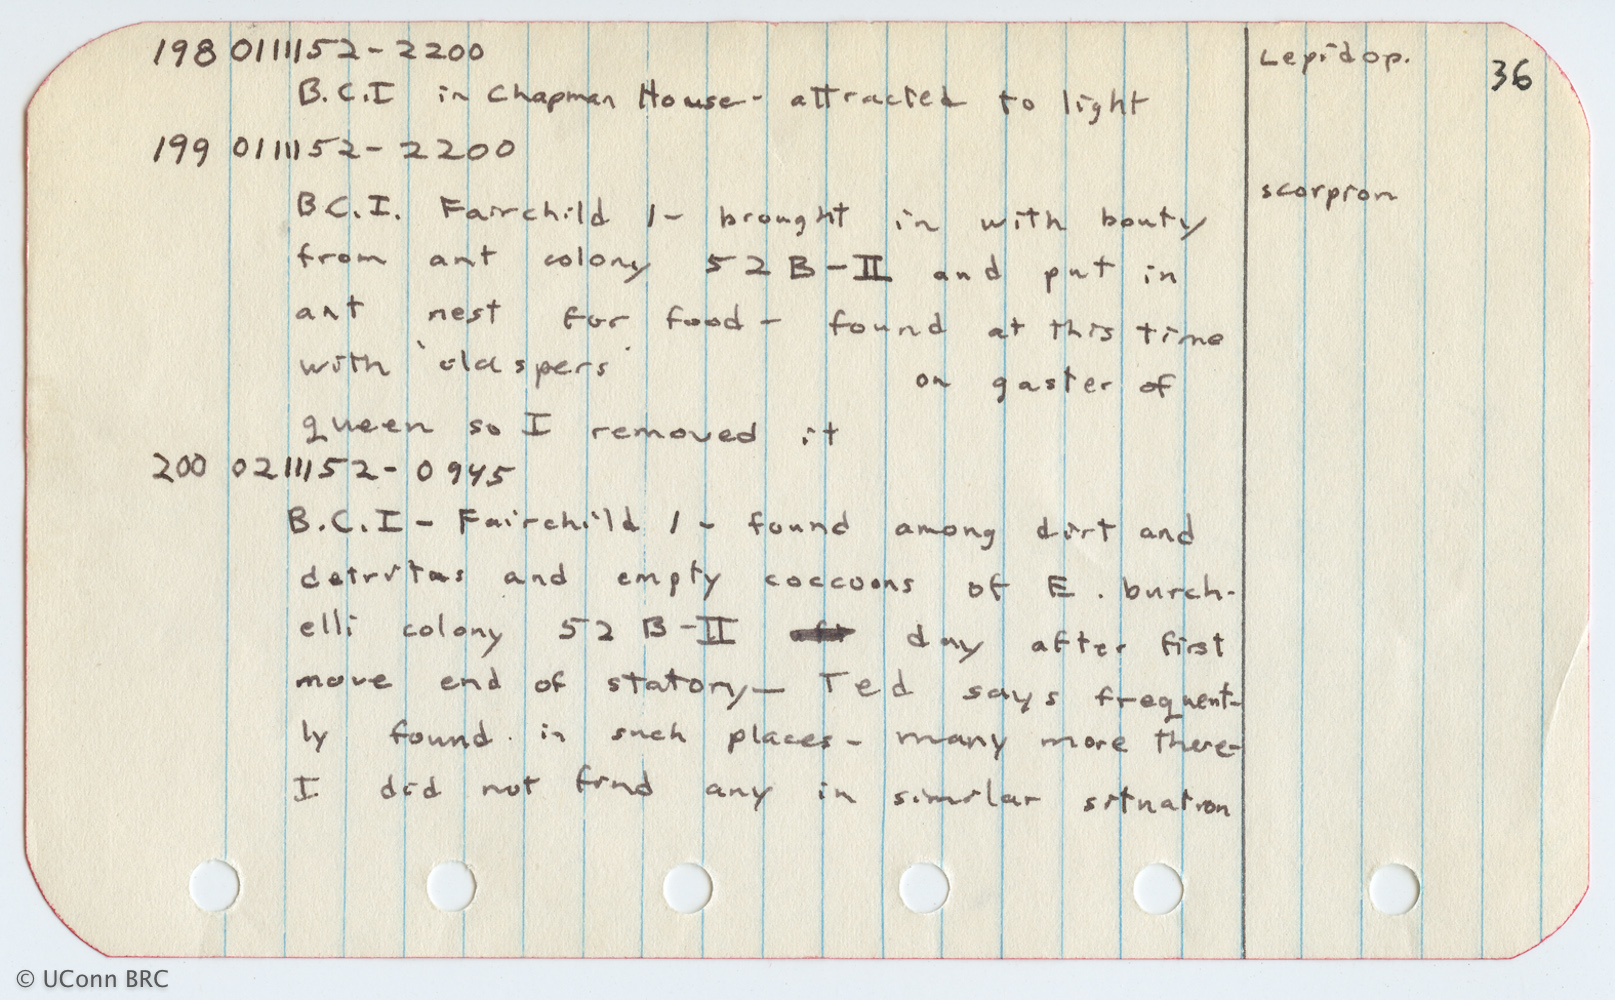 198 0111152-2200 Lepidop. 36
B.C.I in Chapman House - attracted to light
199 0111152-2200
scorpion
B.C.I. Fairchild 1- brought in with bouty
from ant colony 52 B-II and put in
ant nest for food - found at this time
with 'claspers' on gaster of
queen so I removed it
200 0211152-0945
B.C.I - Fairchild 1 - found among dirt and
detritas and empty coccoons of E. burch-
elli colony 52 B-II day after first
move end of statory - Ted says frequent-
ly found in such places - many more there -
I did not find any in similar situation
© UConn BRC